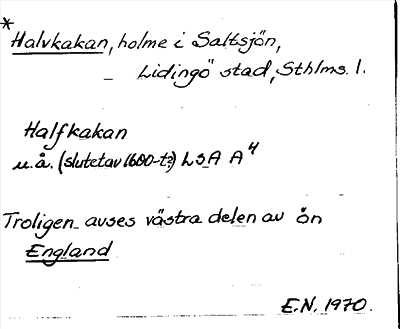 *
Halvkakan, holme i Saltsjön,
– Lidingö stad, Sthlms. l.
Halfkakan
u.å. (slutet av 1600-t?) LSA A4
Troligen avses västra delen av ön
England
E.N. 1970.